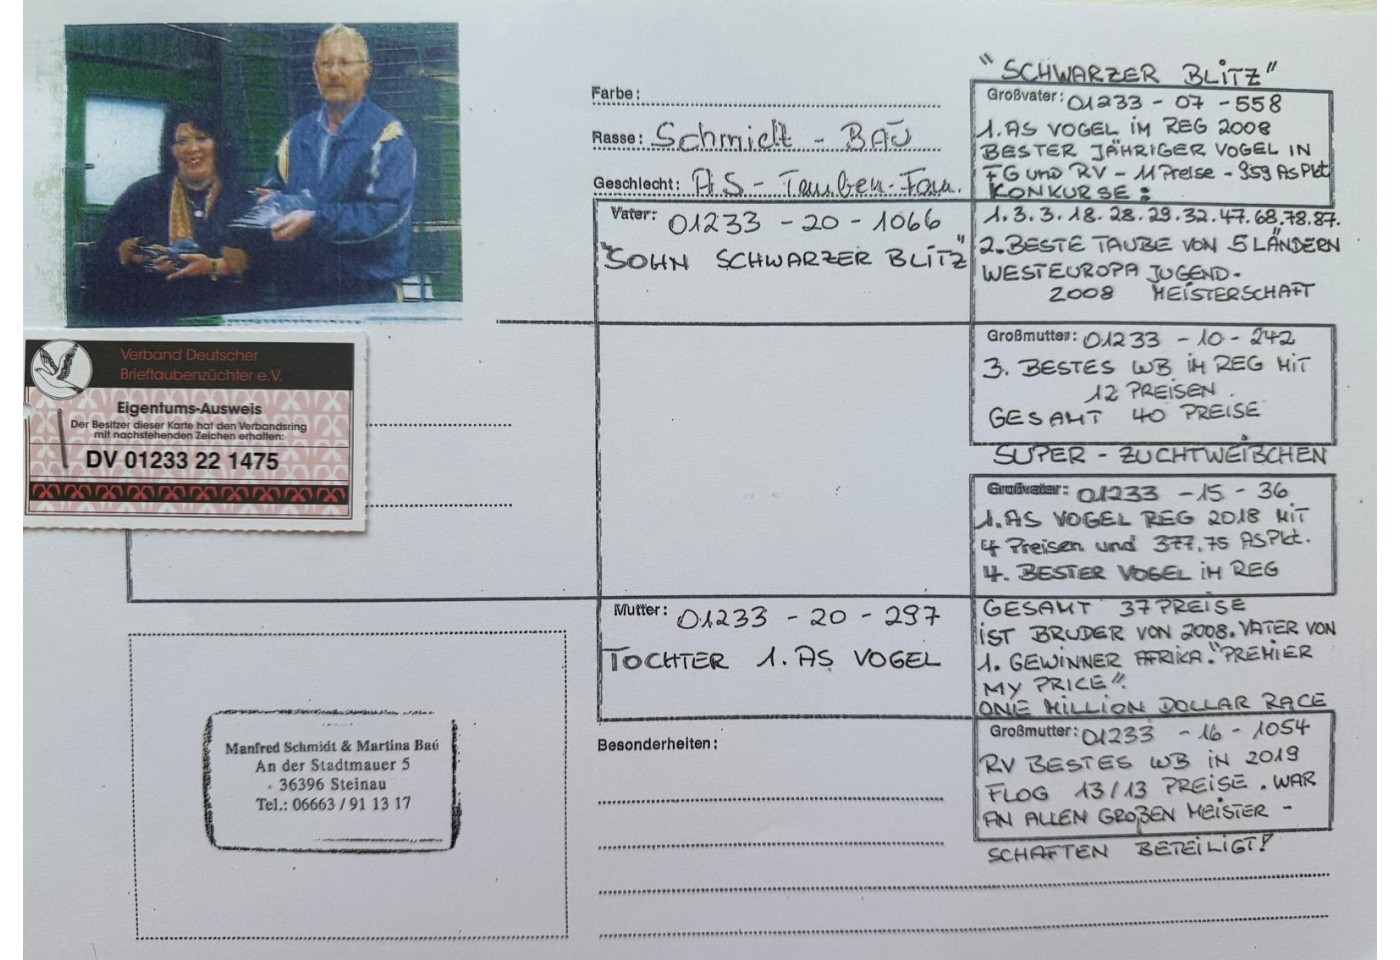 Farbe:
Rasse: Schmidt - BAÚ
Geschlecht: AS - Tauben-Fam.
Vater: 01233 - 20 - 1066
"SOHN SCHWARZER BLITZ"
"SCHWARZER BLITZ"
Großvater: 01233 - 07 - 558
1. AS VOGEL IM REG 2008
BESTER JÄHRIGER VOGEL IN
FG und RV - 11 Preise - 959 As Pkt
KONKURSE:
1. 3. 3. 18. 28. 29. 32. 47. 68. 78. 87.
2. BESTE TAUBE VON 5 LÄNDERN
WESTEUROPA JUGEND-
2008 MEISTERSCHAFT
Großmutter: 01233 - 10 - 242
3. BESTES WB IM REG MIT
12 PREISEN.
GESAMT 40 PREISE
SUPER - ZUCHTWEIBCHEN
Verband Deutscher
Brieftaubenzüchter e.V.
Eigentums-Ausweis
Der Besitzer dieser Karte hat den Verbandsring
mit nachstehenden Zeichen erhalten:
DV 01233 22 1475
Großvater: 01233 - 15 - 36
1. AS VOGEL REG 2018 MIT
4 Preisen und 377,75 ASPkt.
4. BESTER VOGEL IM REG
GESAMT 37 PREISE
IST BRUDER VON 2008. VATER VON
1. GEWINNER AFRIKA. "PREMIER
MY PRICE".
ONE MILLION DOLLAR RACE
Mutter: 01233 - 20 - 297
TOCHTER 1. AS VOGEL
Großmutter: 01233 - 16 - 1054
RV BESTES WB IN 2019
FLOG 13/13 PREISE. WAR
AN ALLEN GROßEN MEISTER -
SCHAFTEN BETEILIGT!
Besonderheiten:
Manfred Schmidt & Martina Baú
An der Stadtmauer 5
36396 Steinau
Tel.: 06663 / 91 13 17